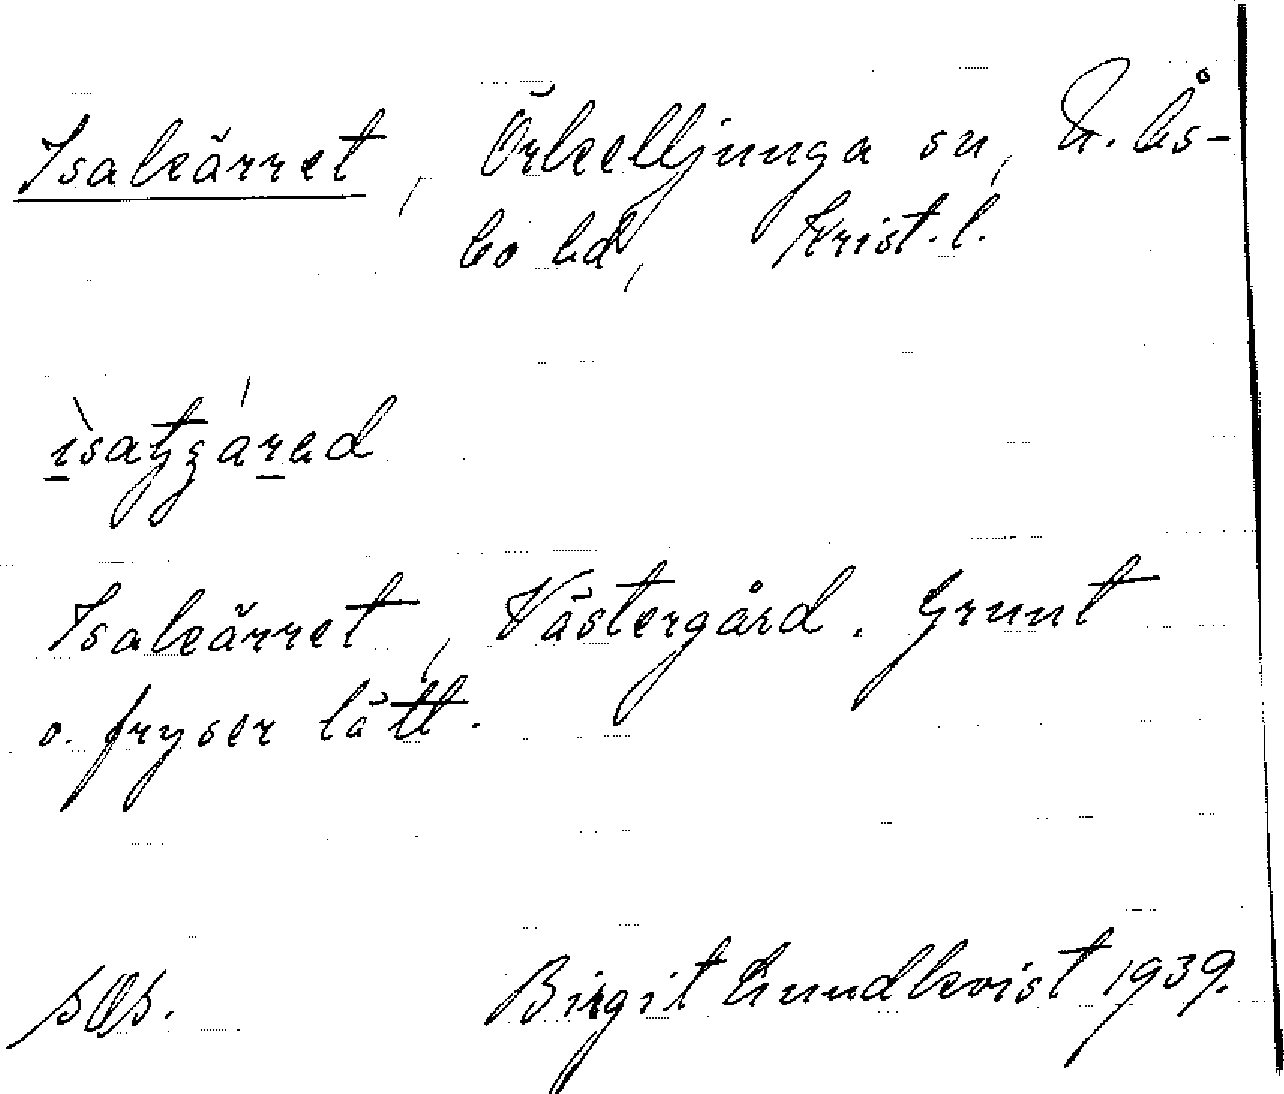 Isakärret, Örkelljunga sn, N. Ås-
bo hd, Krist. l.
Isakärret, Västergård. Grunt
o. fryser lätt.
Birgit Lundkvist 1939.